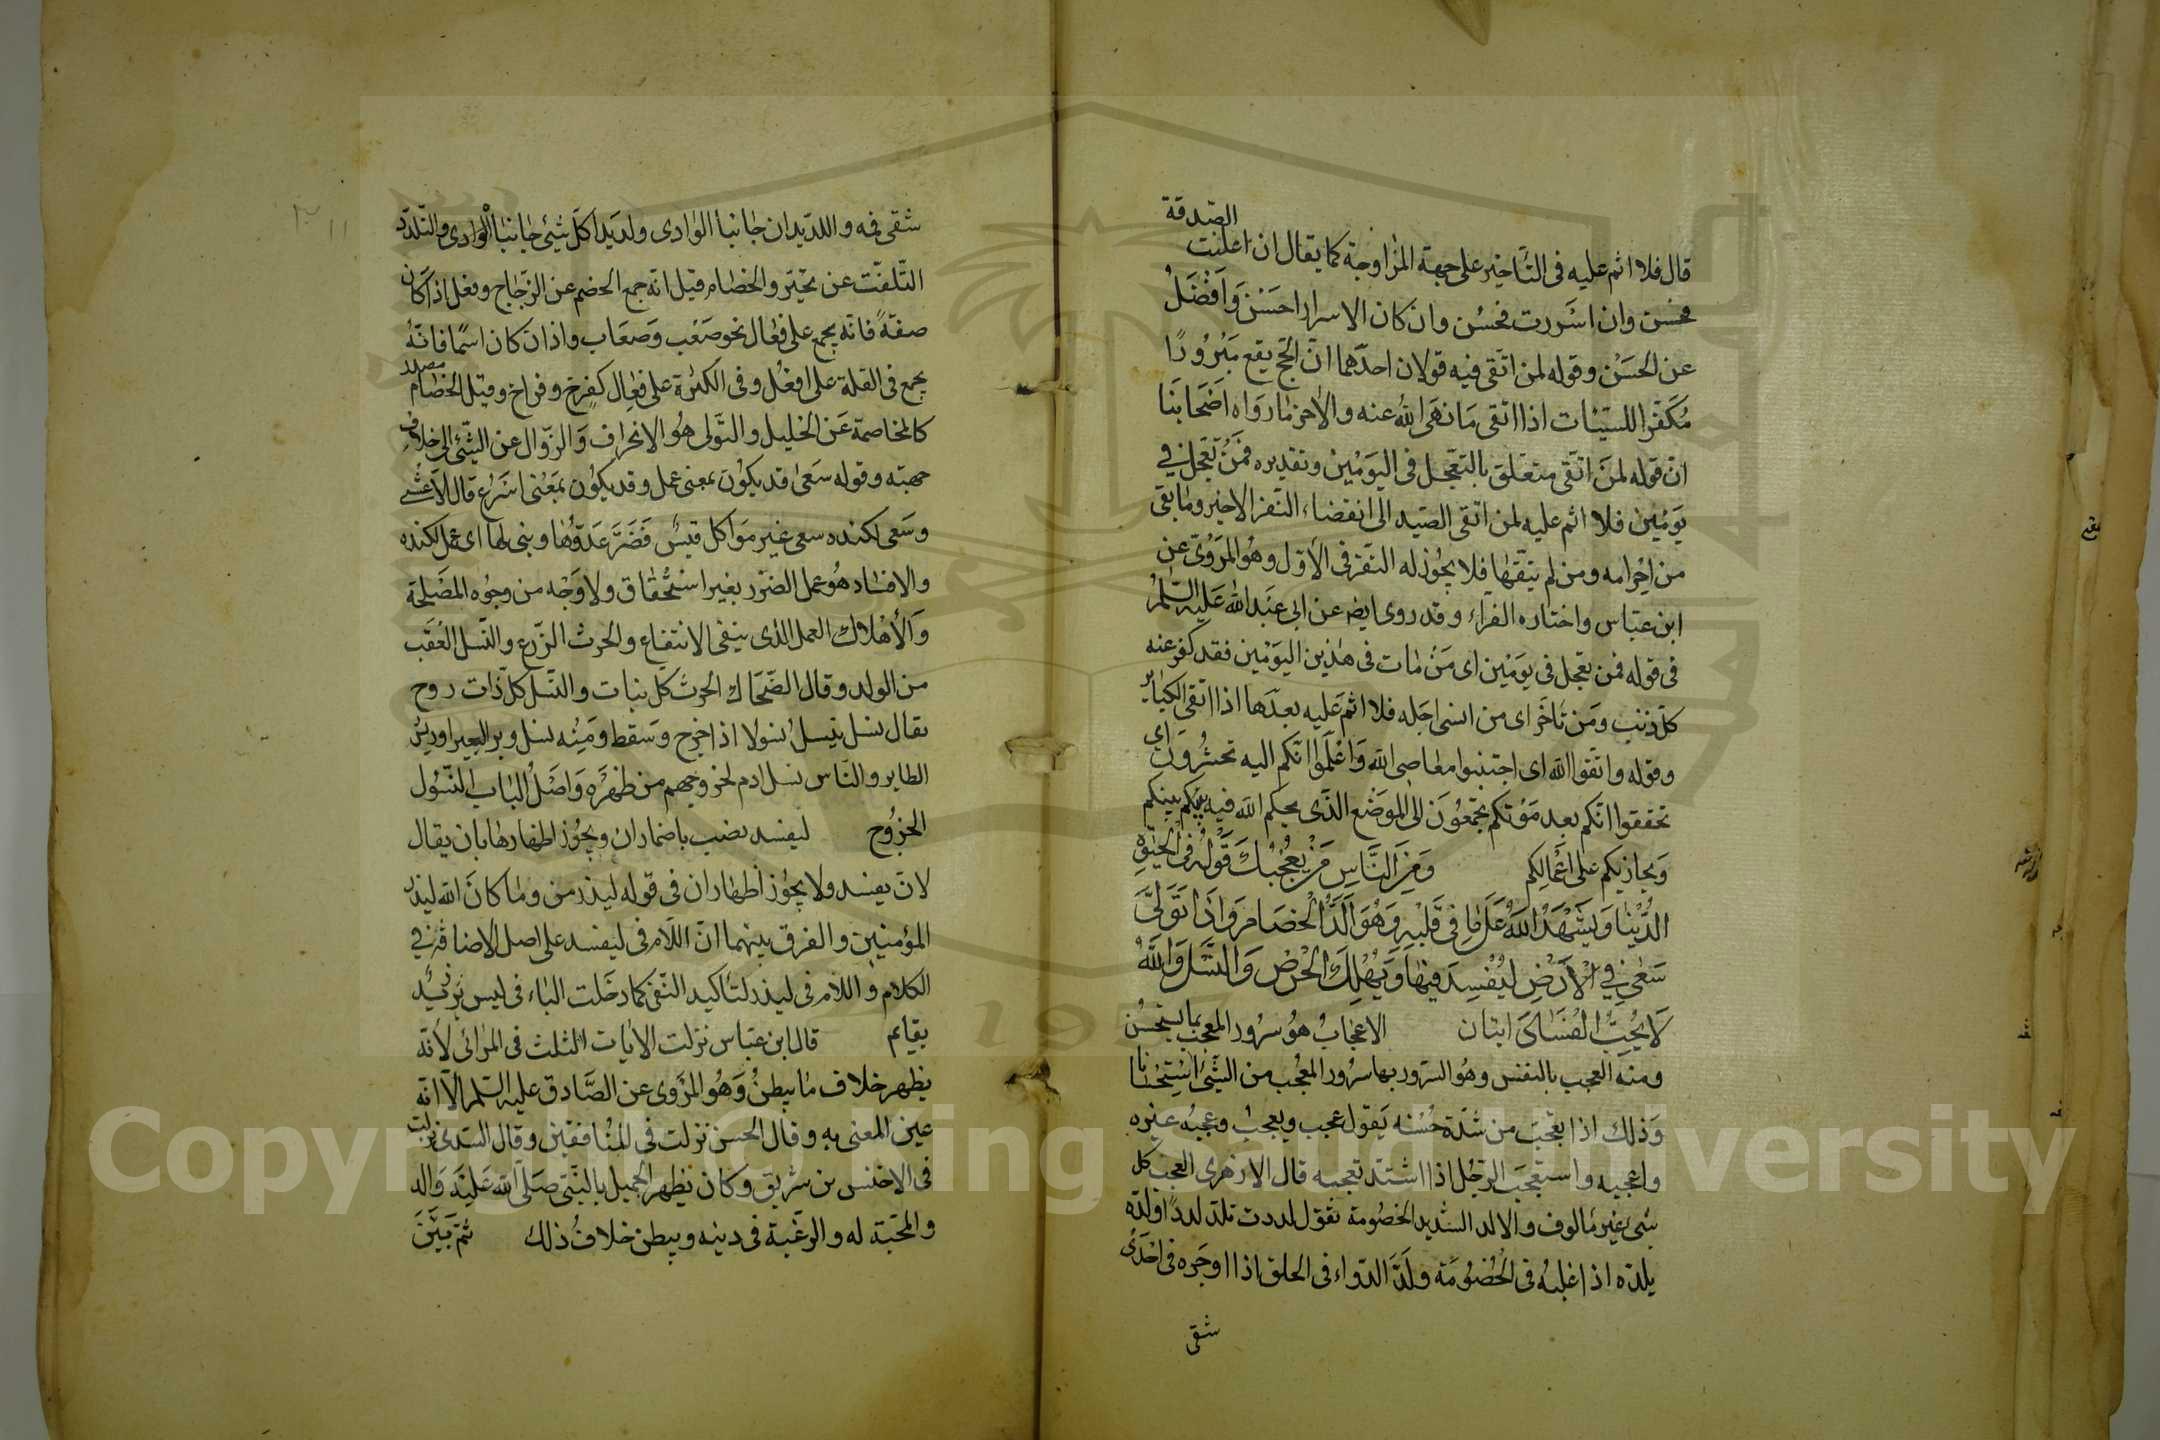 الصدقة
قال فلا اثم عليه فى التأخير على جهة المزاوجة كما يقال ان اعلنت
فحسن وان اسررت فحسن وان كان الاسرار احسن وافضل
عن الحسن وقوله لمن اتقى فيه قولان احدهما ان الحج يقع مبرورا
مكفرا للسيئات اذا اتقى ما نهى الله عنه والاخر ما رواه اصحابنا
ان قوله لمن اتقى متعلق بالتعجل فى اليومين وتقديره فمن تعجل فى
يومين فلا اثم عليه لمن اتقى الصيد الى انقضاء النفر الاخير وما بقى
من احرامه ومن لم يتقها فلا يجوز له النفر فى الاول وهو المروى عن
ابن عباس واختاره الفراء وقد روى ايض عن ابى عبد الله عليه السلم
فى قوله فمن تعجل فى يومين اى من مات فى هذين اليومين فقد كفر عنه
كل ذنب ومن تأخر اى من انسى اجله فلا اثم عليه بعدها اذا اتقى الكبائر
وقوله واتقوا الله اى اجتنبوا معاصى الله واعلموا انكم اليه تحشرون اى
تحققوا انكم بعد موتكم تجمعون الى الموضع الذى يحكم الله فيه بينكم
ويجازيكم على اعمالكم ومن الناس من يعجبك قوله فى الحيوة
الدنيا ويشهد الله على ما فى قلبه وهو الد الخصام واذا تولى
سعى فى الارض ليفسد فيها ويهلك الحرث والنسل والله
لا يحب الفساد ايتان الاعجاب هو سرور المعجب بما يستحسن
ومنه العجب بالنفس وهو السرور بها سرور المعجب من الشئ استحسانا
وذلك اذا تعجب من شدة حسنه يقول عجب وتعجب وعجبه غيره
واعجبه واستعجب الرجل اذا اشتد تعجبه قال الازهرى العجب كل
شئ غير مالوف والالد الشديد الخصومة تقول لددت تلد لددا ولده
يلده اذا غلبه فى الخصومة ولد الدواء فى الحلق اذا اوجره فى احدى
شقى
شقى فمه واللديدان جانبا الوادى ولديدا كل شئ جانبا الوادى والتلدد
التلفت عن تحير والخصام قيل انه جمع الخصم عن الزجاج وفعل اذا كان
صفة فانه يجمع على فعال نحو صعب وصعاب واذا ان كان اسما فانه
يجمع فى القلة على افعل وفى الكثرة على فعال كفرخ وفراخ وقيل الخصام مصدر
كالمخاصمة عن الخليل والتولى هو الانحراف والزوال عن الشئ الى خلاف
جهته وقوله سعى قد يكون بمعنى عمل وقد يكون بمعنى اسرع قال الاعشى
وسعى لكنده سعى غير مواكل قيس فضر عدوها وبنى لها اى عمل لكنده
والافساد هو عمل الضرر بغير استحقاق ولا وجه من وجوه المصلحة
والاهلاك العمل الذى ينفى الانتفاع والحرث الزرع والنسل العقب
من الولد وقال الضحاك الحرث كل نبات والنسل كل ذات روح
يقال نسل ينسل نسولا اذا خرج وسقط ومنه نسل وبر البعير او ريش
الطاير والناس نسل ادم لخروجهم من ظهره واصل الباب النسول
الخروج ليفسد نصب باضمار ان ويجوز اظهارها بان يقال
لان يفسد ولا يجوز اظهار ان فى قوله ليذر من وما كان الله ليذر
المؤمنين والفرق بينهما ان اللام فى ليفسد على اصل الاضافة فى
الكلام واللام فى ليذر لتأكيد النفى كما دخلت الباء فى ليس زيد
بقائم قال ابن عباس نزلت الايات الثلث فى المرائى لانه
يظهر خلاف ما يبطن وهو المروى عن الصادق عليه السلم الا انه
عين المعنى به وقال الحسن نزلت فى المنافقين وقال السدى نزلت
فى الاخنس بن شريق وكان يظهر الجميل بالنبى صلى الله عليه واله
والمحبة له والرغبة فى دينه ويبطن خلاف ذلك ثم بين
Copyright © King Saud University
1957